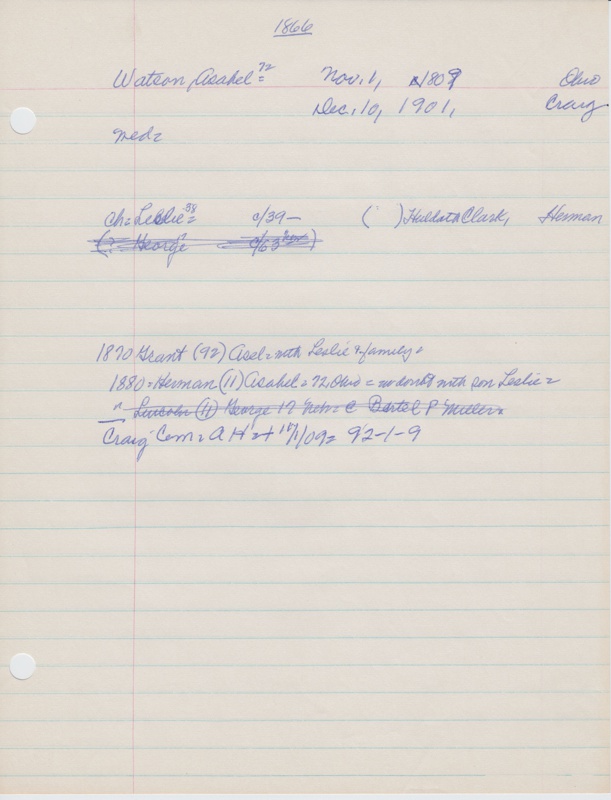 1866
Watson, Asahel = 72 Nov. 1, 1809 Ohio
Dec. 10, 1901, Craig
med =
ch = Leslie = 38 c/39 - ( ) Huldah Clark, Herman
(? George c/63 )
1870 Grant (92) Asel = with Leslie & family =
1880 = Herman (11) Asahel = 72 Ohio = no doubt with son Leslie =
" Lincoln (11) George 17 Neb = C Bartel P Miller =
Craig Cem = A H = + 11/1/09 = 92-1-9